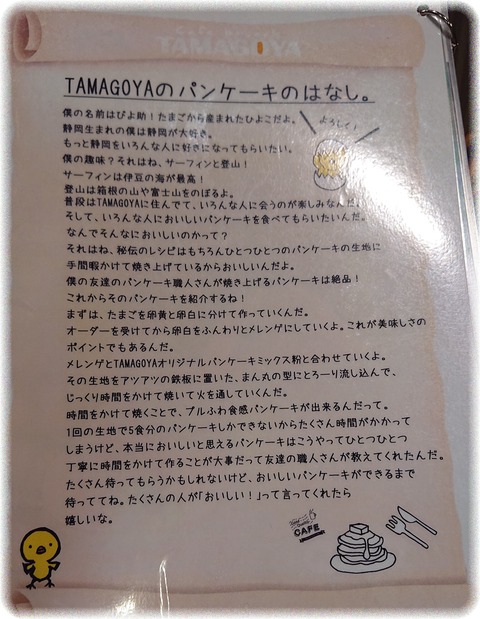 TAMAGOYA
TAMAGOYAのパンケーキのはなし。
よろしく!
僕の名前はぴよ助!たまごから産まれたひよこだよ。
静岡生まれの僕は静岡が大好き。
もっと静岡をいろんな人に好きになってもらいたい。
僕の趣味?それはね、サーフィンと登山!
サーフィンは伊豆の海が最高!
登山は箱根の山や富士山をのぼるよ。
普段はTAMAGOYAに住んでて、いろんな人に会うのが楽しみなんだ。
そして、いろんな人においしいパンケーキを食べてもらいたいんだ。
なんでそんなにおいしいのかって?
それはね、秘伝のレシピはもちろんひとつひとつのパンケーキの生地に
手間暇かけて焼き上げているからおいしいんだよ。
僕の友達のパンケーキ職人さんが焼き上げるパンケーキは絶品!
これからそのパンケーキを紹介するね!
まずは、たまごを卵黄と卵白に分けて作っていくんだ。
オーダーを受けてから卵白をふんわりとメレンゲにしていくよ。これが美味しさの
ポイントでもあるんだ。
メレンゲとTAMAGOYAオリジナルパンケーキミックス粉と合わせていくよ。
その生地をアツアツの鉄板に置いた、まん丸の型にとろーり流し込んで、
じっくり時間をかけて焼いて火を通していくんだ。
時間をかけて焼くことで、プルふわ食感パンケーキが出来るんだって。
1回の生地で5食分のパンケーキしかできないからたくさん時間がかかって
しまうけど、本当においしいと思えるパンケーキはこうやってひとつひとつ
丁寧に時間をかけて作ることが大事だって友達の職人さんが教えてくれたんだ。
たくさん待ってもらうかもしれないけど、おいしいパンケーキができるまで
待っててね。たくさんの人が「おいしい!」って言ってくれたら
嬉しいな。
CAFE